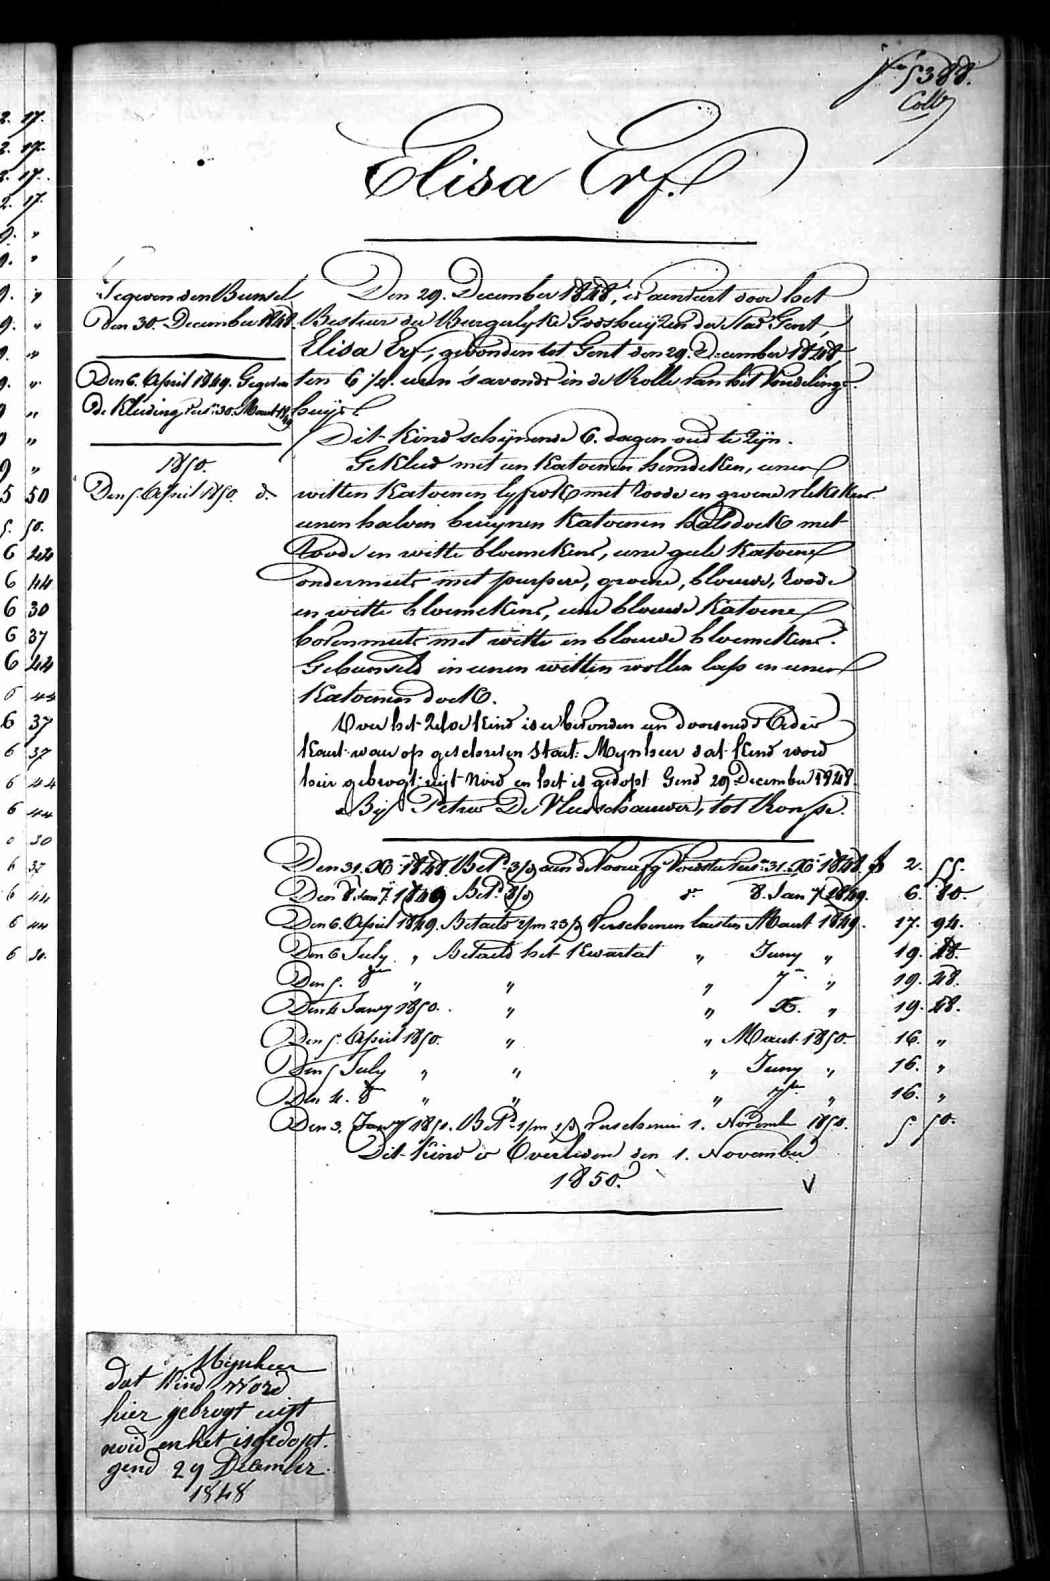 5388.
Colle
Elisa Erf.
Gegeven den Bunsel
den 30. December 1848.
Den 6. April 1849. Gegeven
de Kleeding 30. Maart 1849
1850.
Den 5. April 1850. do
Den 29. December 1848, is aenveirt door het
Bestuur der Burgerlyke Godshuyzen der Stad Gent,
Elisa Erf, gevonden tot Gent den 29. December 1848
ten 6 1/2 uren s'avonds in de Rolle van het Vondelings-
huys.
Dit kind schynende 6. dagen oud te zyn.
Gekleed met een katoenen hemdeken, eenen
witten katoenen lyfrok met roode en groene vlekskens
eenen halven bruynen katoenen halsdoek met
roode en witte bloemekens, eene geele katoene
ondermuts met purpere, groene, blouwe, roode
en witte bloemekens, eene blouwe katoene
bovenmuts met witte en blouwe bloemekens.
Gebunseld in eenen witten wollen lap en eenen
katoenen doek.
Over het zelve kind is er bevonden een doorsnede
kaart waer op geschreven staat: Mynheer dat kind word
hier gebrogt uijt noid en het is gedopt Gend 29 December 1848
Bij Petrus De Vleeschauwer, tot Ronsse.
Den 31. Xb. 1848. Bet. 3/ aen de Voorn. 31. Xb. 1848. f 2. 55.
Den 8. Jan. 1849 Bet. 8/ do 8. Jan 1849. 6. 80.
Den 6. April 1849. Betaeld 2/m 23/ verschenen laesten Maart 1849. 17. 94.
Den 6 July " Betaeld het kwartal " Juny " 19. 48.
Den 5. 8br " " " 7br " 19. 48.
Den 4 Janry 1850. " " Xb. " 19. 48.
Den 5. April 1850. " " Maart 1850. 16. "
Den 5 July " " " Juny " 16. "
Den 4. 8 " " " 7br " 16. "
Den 3. Janry 1851. Bet. 1/m 1/ verschenen 1. Novemb 1850. 5 50.
Dit kind is Overleden den 1. November
1850.
Mynheer
dat kind word
hier gebrogt uijt
noid en het is gedopt.
gend 29 December
1848
2. 17.
2. 17.
2. 17.
2. 17.
9. "
9. "
9. "
9. "
9. "
9. "
9 "
9 "
9 "
5 50
5. 50.
6 44
6 44
6 30
6 37
6 44
6 44
6 37
6 37
6 44
6 44
0 30
6 37
6 44
6 44
6 30.